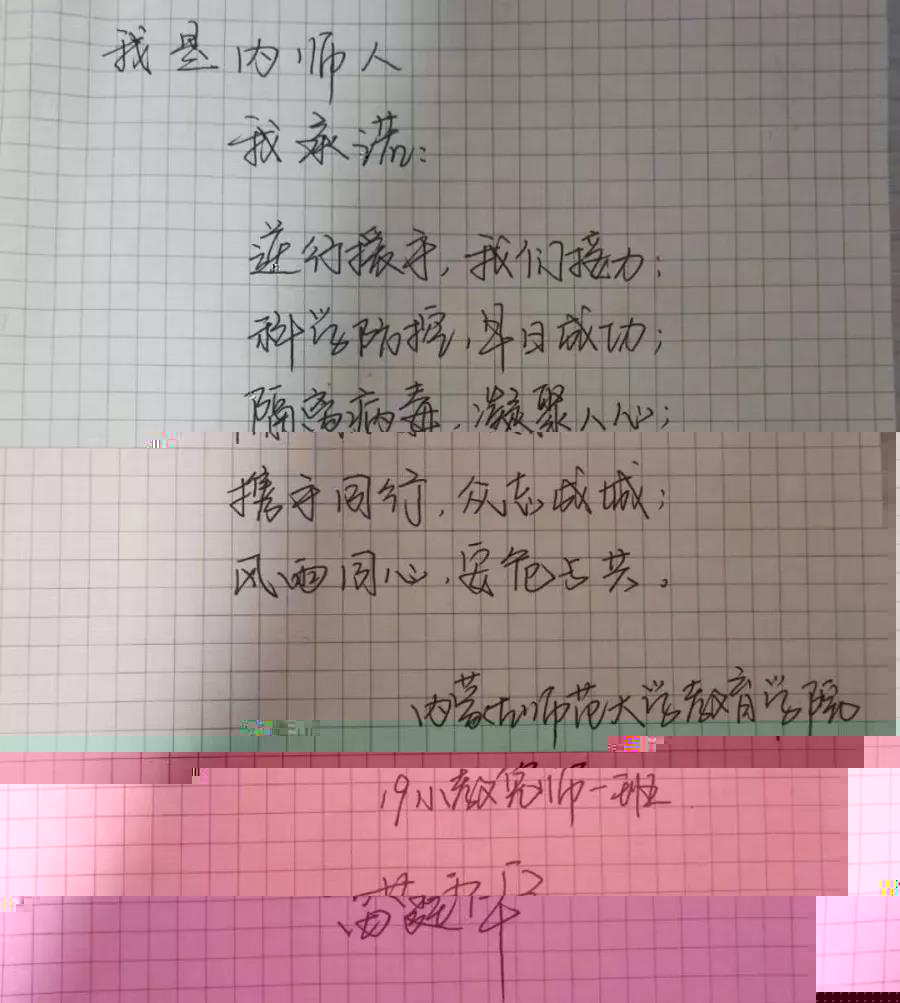 我是内师人
我承诺:
逆行援手,我们接力;
科学防控,早日成功;
隔离病毒,凝聚人心;
携手同行,众志成城;
风雨同心,安危与共。
内蒙古师范大学教育学院
19小教免师一班